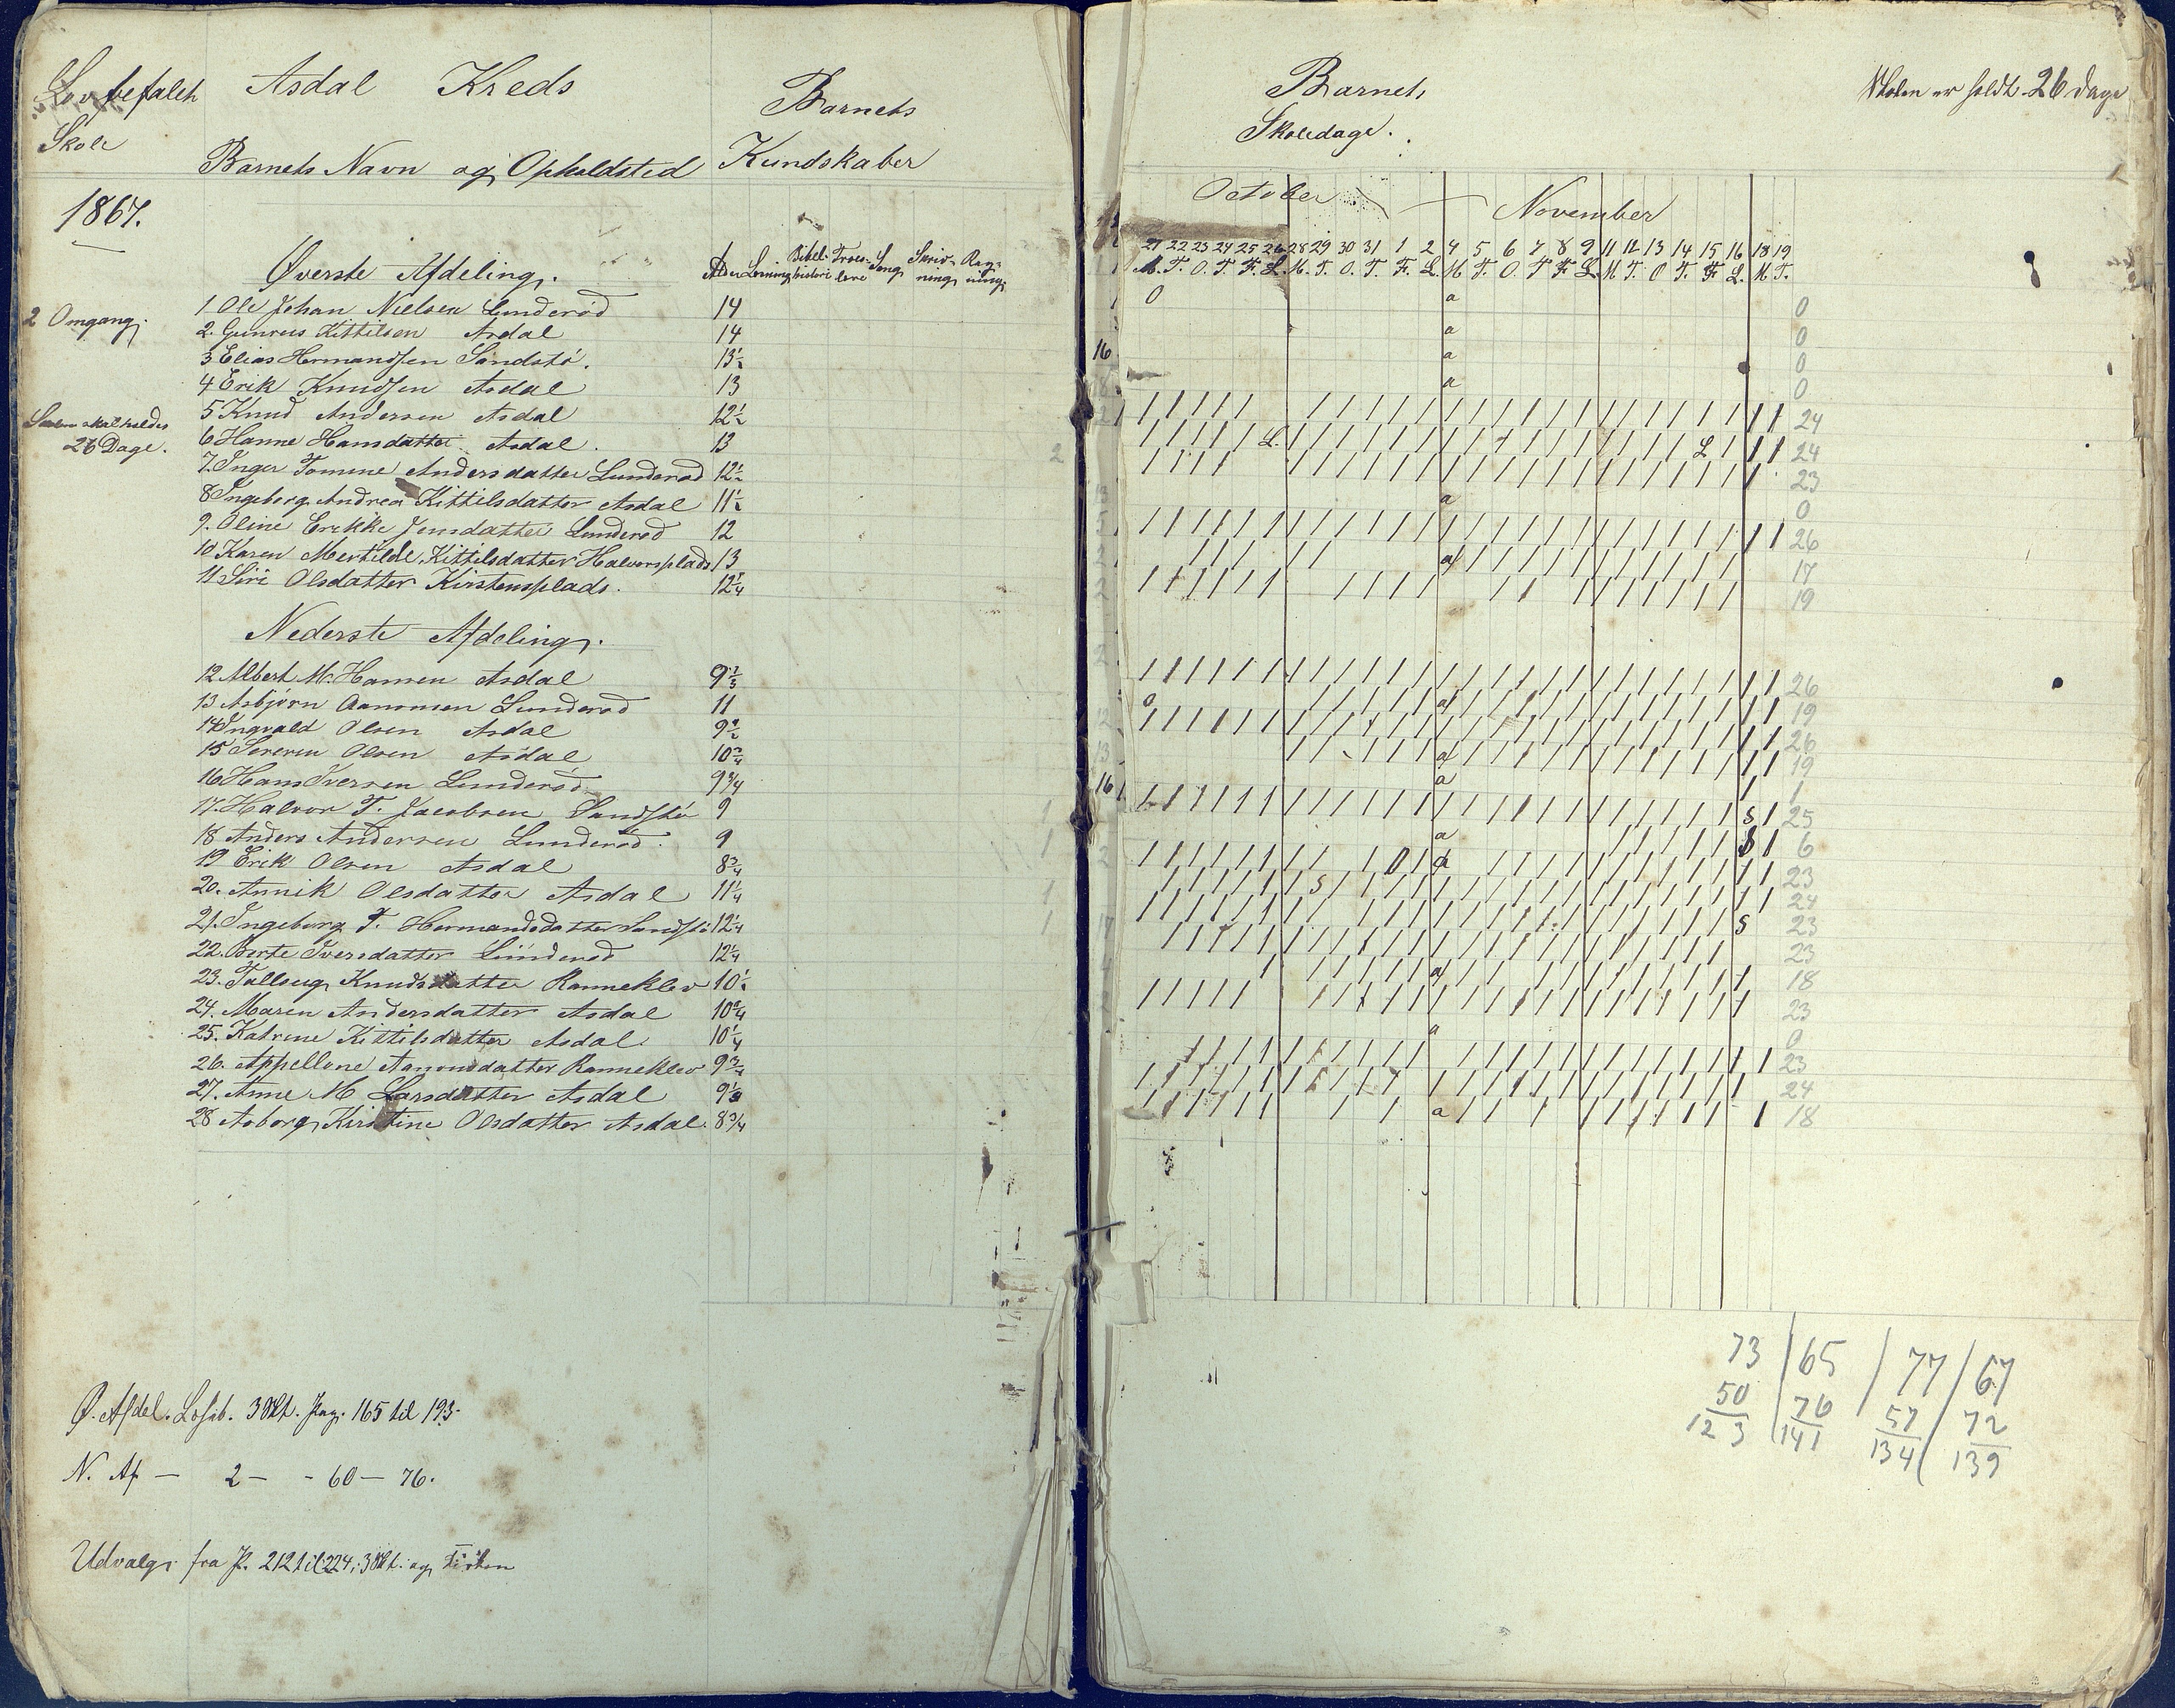 Lovbefalet
Skole
Asdal Kreds
Barnets Navn og Opholdsted
Barnets
Kundskaber
1867.
Øverste Afdeling.
Alder Læsning Bibelhistorie Troeslære Sang Skrivning Regning
2 Omgang.
1 Ole Johan Nielsen Lunderød 14
2. Gunneus Kittilsen Asdal 14
3 Elias Hermandsen Sandstø. 13½
4 Erik Knudsen Asdal 13
Skolen skal holdes
26 Dage.
5 Knud Andersen Asdal 12½
6 Hanne Hansdatter Asdal. 13
7. Inger Tomine Andersdatter Lunderød 12½
8 Ingeborg Andrea Kittilsdatter Asdal 11½
9. Oline Erikke Jensdatter Lunderød 12
10 Karen Mertilde Kittilsdatter Halvorsplads 13
11 Siri Olsdatter Kirstensplads. 12¼
Nederste Afdeling.
12 Albert M. Hansen Asdal 9⅓
13 Asbjørn Aanonsen Lunderød 11
14 Ingvald Olsen Asdal 9½
15 Severin Olsen Asdal 10¾
16 Hans Iversen Lunderød 9¾
17. Halvor T. Jacobsen Sandstø 9
18 Anders Andersen Lunderød. 9
19 Erik Olsen Asdal 8¾
20. Annik Olsdatter Asdal 11¼
21. Ingeborg T. Hermandsdatter Sandstø 12¼
22. Berte Iversdatter Lunderød 12¼
23. Tallaug Knudsdatter Ranneklev 10½
24. Maren Andersdatter Asdal 10¾
25. Katrine Kittilsdatter Asdal 10¼
26. Appellone Aanonsdatter Ranneklev 9¾
27. Anne M Larsdatter Asdal 9½
28 Asborg Kirstine Olsdatter Asdal. 8¾
Ø. Afdel. Læseb. 3 Skt. Pag. 165 til 193.
N. Af — 2 — - 60 — 76.
Udvalg fra P. 212 til 224, 3 Skt. og
Barnets
Skoledage.
Skolen er holdt 26 Dage
October — November
21 22 23 24 25 26 28 29 30 31 1 2 4 5 6 7 8 9 11 12 13 14 15 16 18 19
M. T. O. T. F. L. M. T. O. T. F. L. M T. O. T F L M T. O T. F L. M. T.
0 a 0
a 0
a 0
a 0
24
L. L 24
23
a 0
26
a 17
19
26
0 a 19
26
a 19
a 1
S 25
a 6
0 a 23
S 24
S 23
23
a 18
23
a 0
23
24
a 18
73 | 65 | 77 | 67
50 | 76 | 57 | 72
123 | 141 | 134 | 139